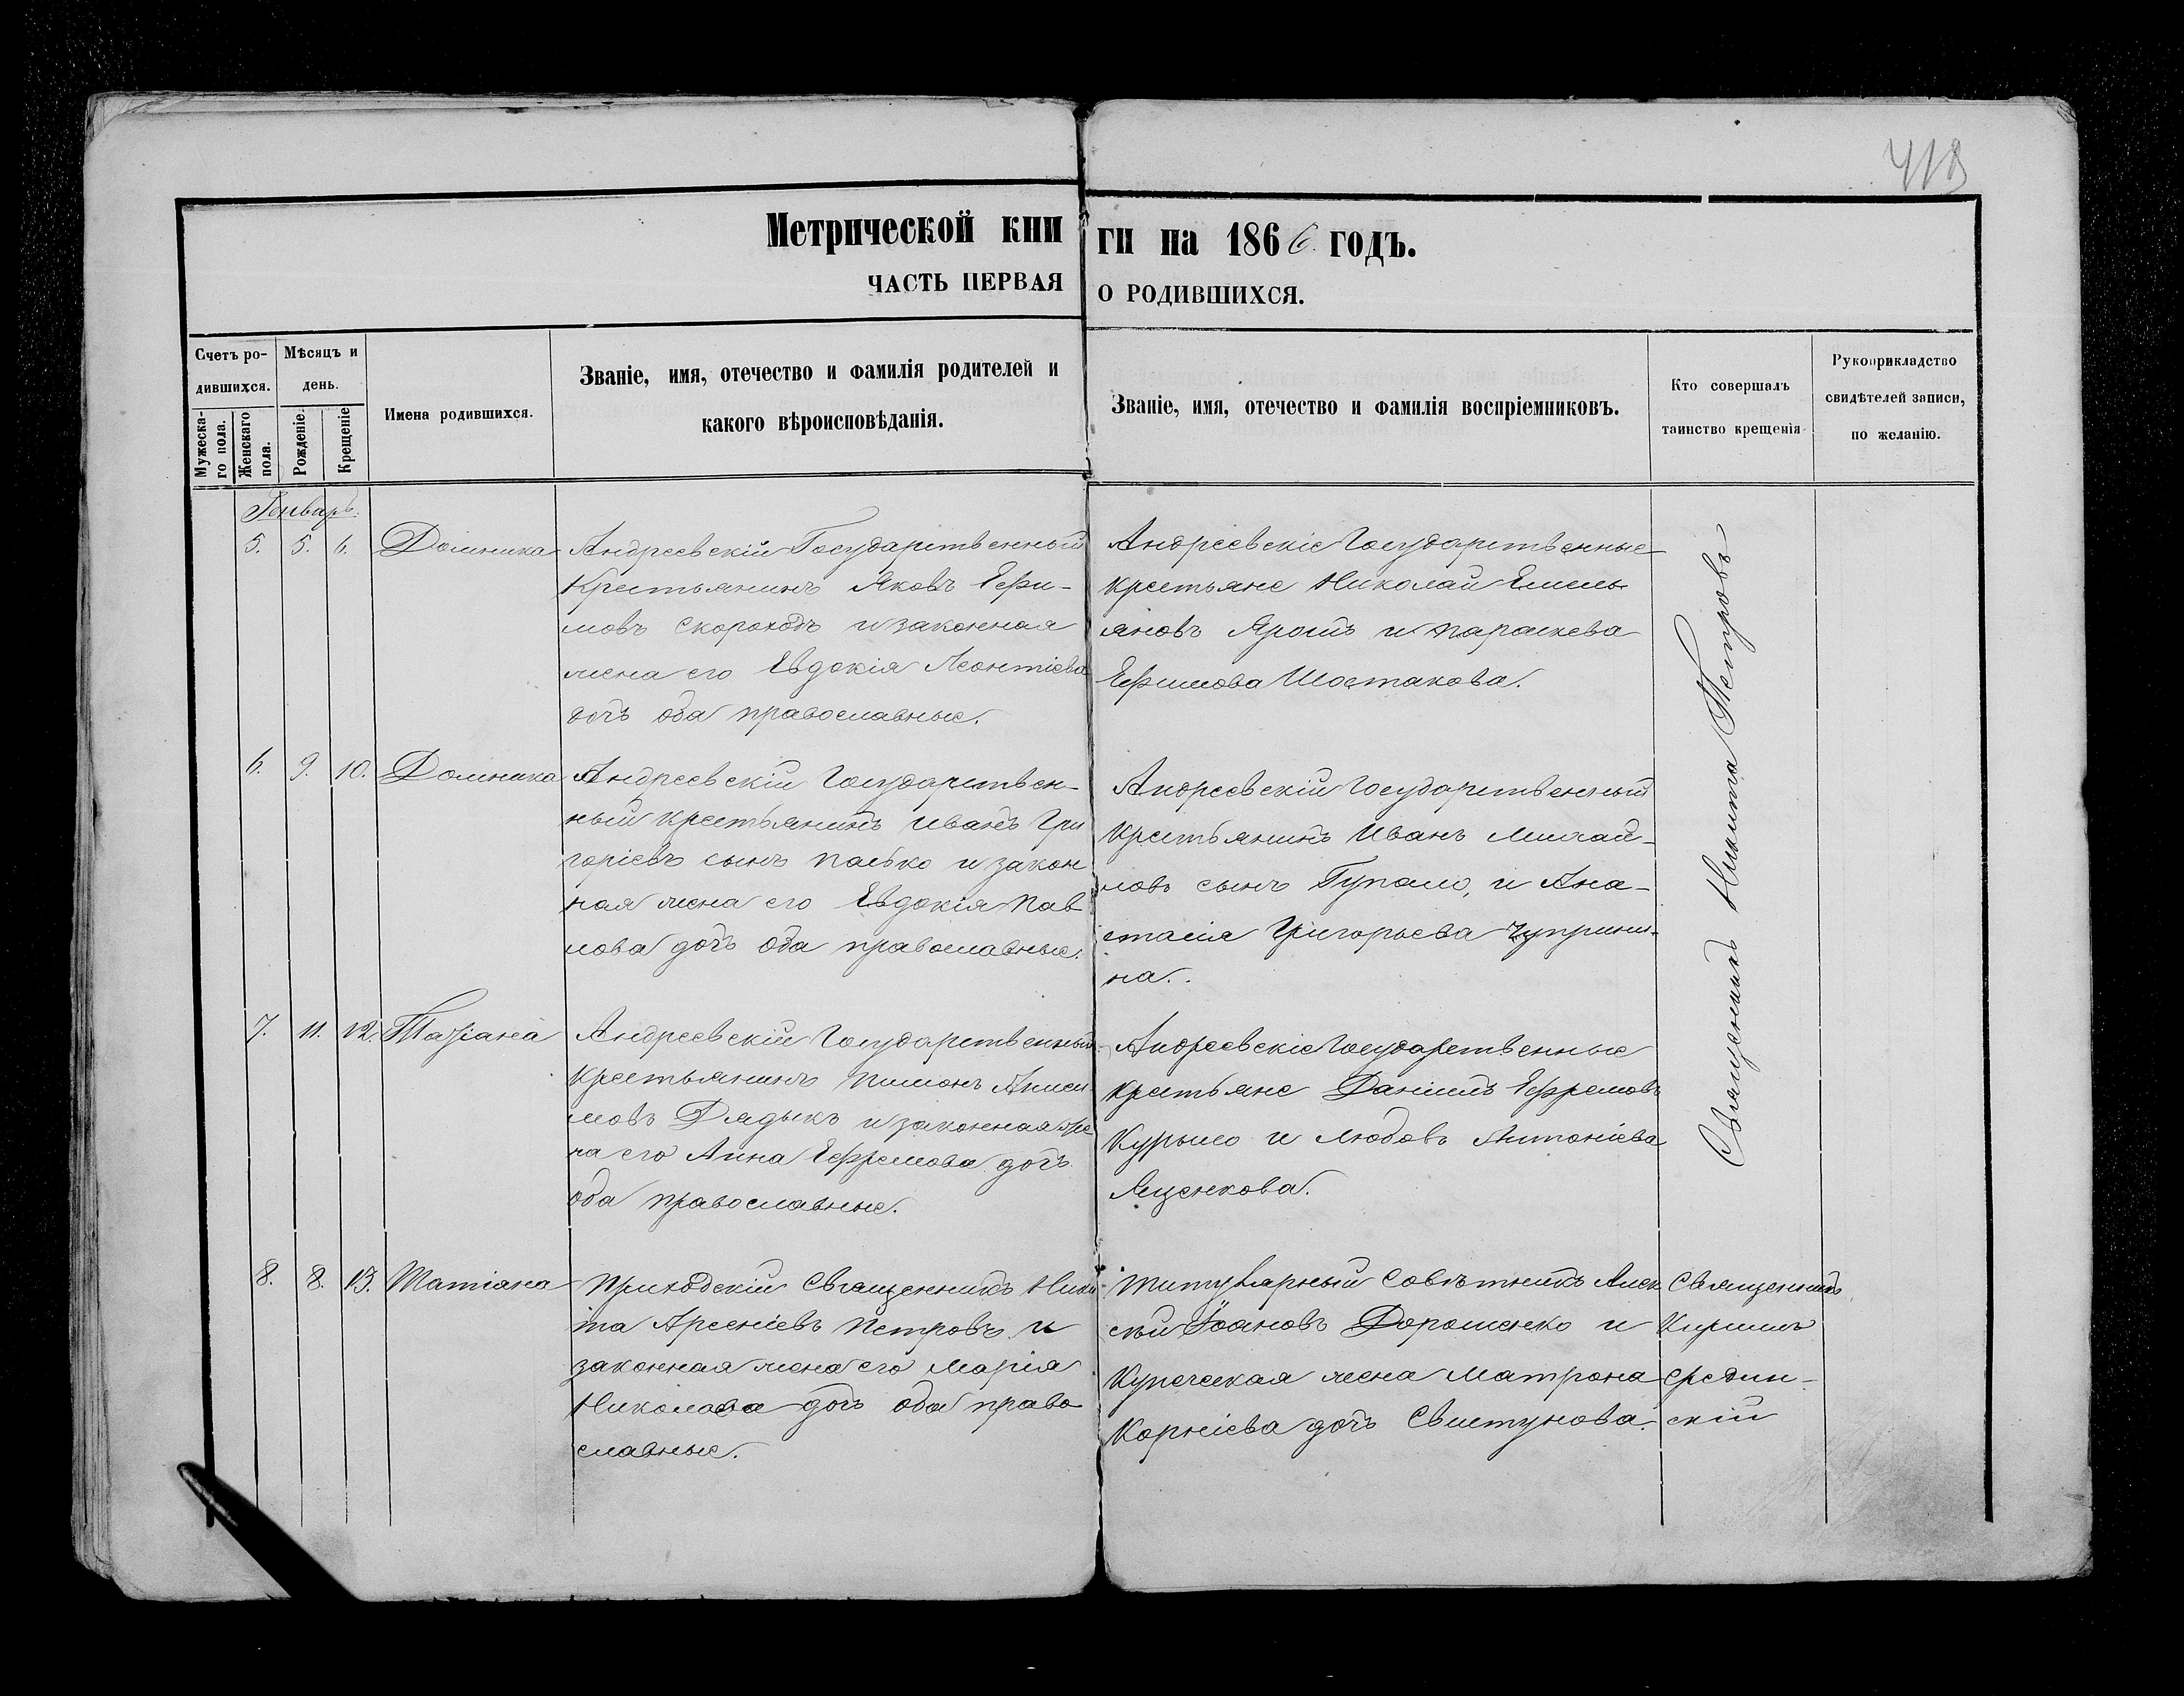 418
Метрической кни ги на 1866. годъ.
ЧАСТЬ ПЕРВАЯ О РОДИВШИХСЯ.
Счетъ ро-
дившихся.
Мужеска-
го пола.
Женскаго
пола.
Мѣсяцъ и
день.
Рожденіе.
Крещеніе
Имена родившихся.
Званіе, имя, отечество и фамилія родителей и
какого вѣроисповѣданія.
Званіе, имя, отечество и фамилія воспріемниковъ.
Кто совершалъ
таинство крещенія
Рукоприкладство
свидѣтелей записи,
по желанію.
Январь.
5. 5. 6. Домника
Андреевскій Государственный
Крестьянинъ Яковъ Ефи-
мовъ Скороходъ и законная
жена его Евдокія Леонтіева
дочь оба православные.
Андреевскіе Государственные
крестьяне Николай Емель
яновъ Ярошъ и Параскева
Ефимова Шостакова.
Священникъ Никита Петровъ
6. 9. 10. Домника
Андреевскій Государствен-
ный крестьянинъ Иванъ Гри
горіевъ сынъ Палько и закон
ная жена его Евдокія Пав
лова дочь оба православные.
Андреевскій Государственный
Крестьянинъ Иванъ Михай-
ловъ сынъ Гупало, и Ана-
стасія Григорьева Чуприни-
на.
7. 11. 12. Татіана
Андреевскій Государственный
Крестьянинъ Пимонъ Аниси
мовъ Дядыкъ и законная же
на его Анна Ефремова дочь
оба православные.
Андреевскіе Государственные
крестьяне Даніилъ Ефремовъ
Курыло и Любовь Антоніева
Яценкова.
8. 8. 13. Татіана
Приходскій Священникъ Ники
та Арсеніевъ Петровъ и
законная жена его Марія
Николаева дочь оба право
славные.
Титулярный Совѣтникъ Алек
сѣй Іоановъ Дорошенко и
Купеческая жена Матрона
Корніева дочь Свистунова.
Священникъ
Кириллъ
Средин-
скій